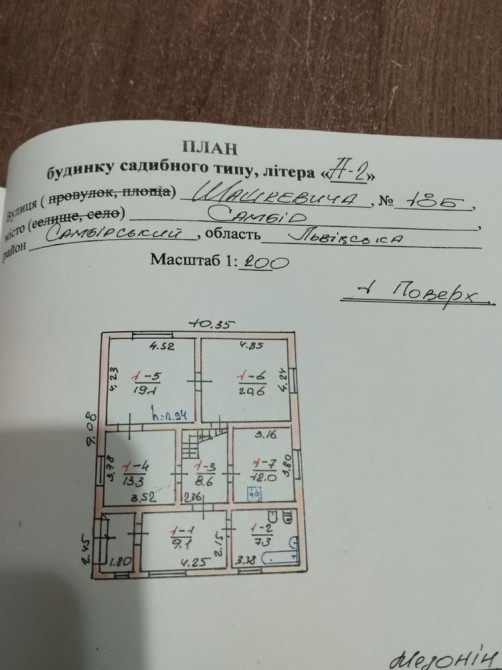 ПЛАН
будинку садибного типу, літера «А-2»
Вулиця ( провулок, площа) Шашкевича, № 18Б,
місто (селище, село) Самбір,
район Самбірський, область Львівська
Масштаб 1: 200
1 Поверх
10.35
4.52 4.85
4.23 1-5 19.1 1-6 20.6 4.24
h=2.94
9.08
3.16
3.78 1-4 13.3 1-3 8.6 1-7 12.0 3.80
3.52 2.36
1-1 9.1 2.15 1-2 7.3
2.45 1.80 4.25 3.38
Мезонін